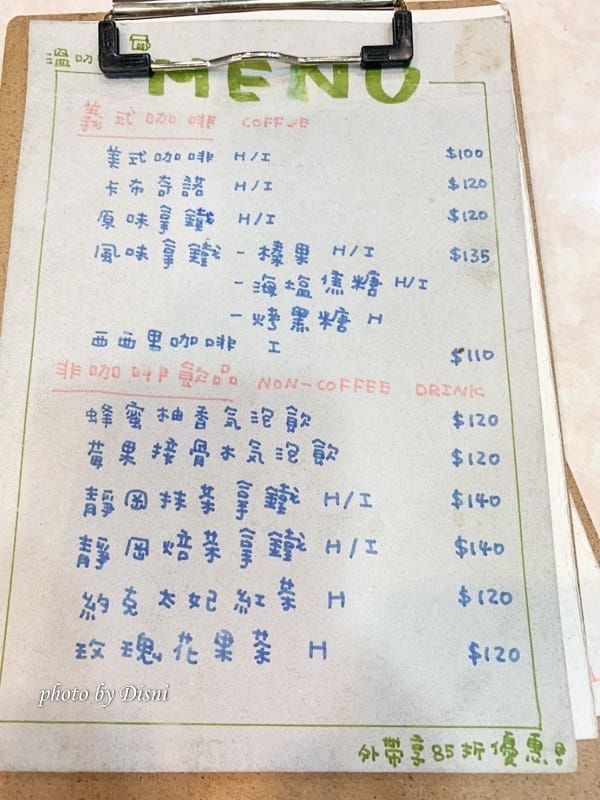 溫叻
MENU
義式咖啡 COFFEE
美式咖啡 H/I $100
卡布奇諾 H/I $120
原味拿鐵 H/I $120
風味拿鐵 - 榛果 H/I $135
- 海塩焦糖 H/I
- 烤黑糖 H
西西里咖啡 I $110
非咖啡飲品 NON-COFFEE DRINK
蜂蜜柚香気泡飲 $120
莓果接骨木気泡飲 $120
靜岡抹茶拿鐵 H/I $140
靜岡焙茶拿鐵 H/I $140
約克太妃紅茶 H $120
玫瑰花果茶 H $120
photo by Disni
外帶享85折優惠